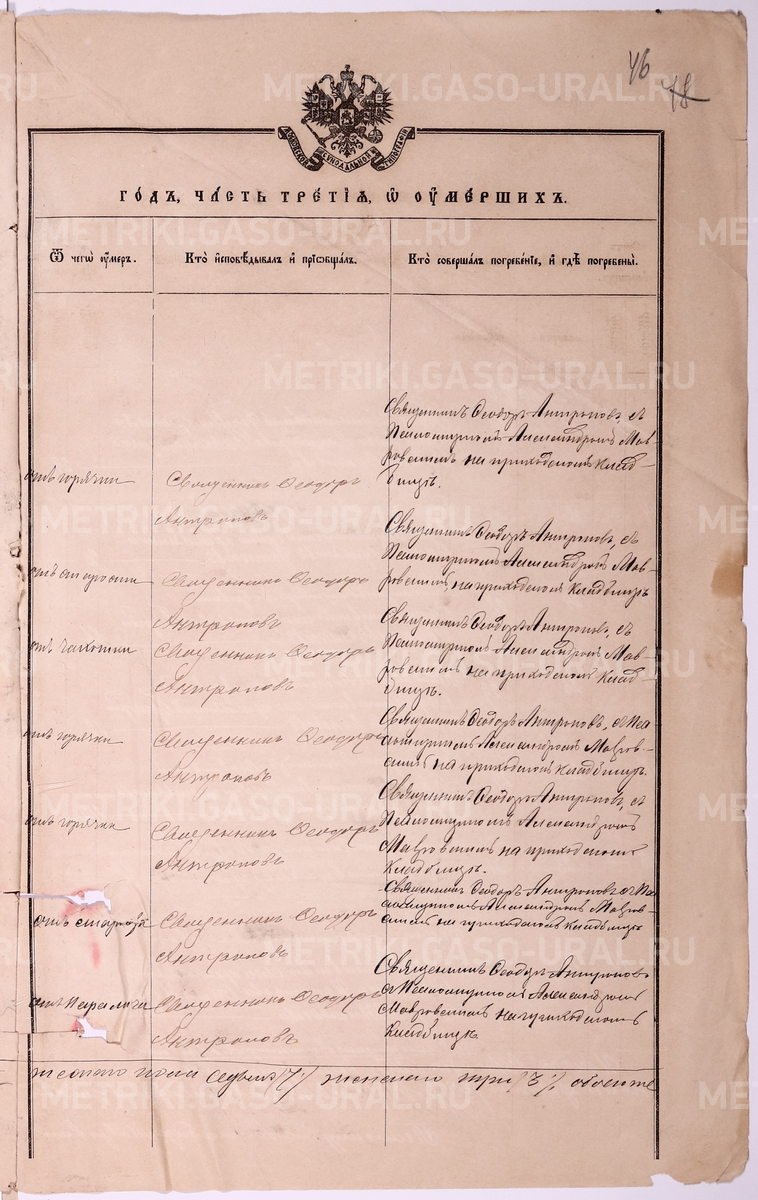 46
48
МОСКОВСКОЙ СѴНОДАЛЬНОЙ ТИПОГРАФІИ
ГОДЪ, ЧАСТЬ ТРЕТІЯ, Ѡ ОУМЕРШИХЪ.
Ѿ чегѡ оумеръ.
Кто исповѣдывалъ и пріѡбщалъ.
Кто совершалъ погребеніе, и гдѣ погребены.
отъ горячки
Священникъ Ѳеодоръ
Антроповъ
Священникъ Ѳеодоръ Антроповъ, съ
Псаломщикомъ Александромъ Мав-
ровскимъ на приходскомъ клад-
бищѣ.
отъ старости
Священникъ Ѳеодоръ
Антроповъ
Священникъ Ѳеодоръ Антроповъ, съ
Псаломщикомъ Александромъ Мав-
ровскимъ, на приходскомъ кладбищѣ
отъ чахотки
Священникъ Ѳеодоръ
Антроповъ
Священникъ Ѳеодоръ Антроповъ, съ
Псаломщикомъ Александромъ Мав-
ровскимъ на приходскомъ клад-
бищѣ.
отъ горячки
Священникъ Ѳеодоръ
Антроповъ
Священникъ Ѳеодоръ Антроповъ, съ Пса-
ломщикомъ Александромъ Мавров-
скимъ на приходскомъ кладбищѣ.
отъ горячки
Священникъ Ѳеодоръ
Антроповъ
Священникъ Ѳеодоръ Антроповъ, съ
Псаломщикомъ Александромъ
Мавровскимъ на приходскомъ
кладбищѣ.
отъ
Священникъ Ѳеодоръ
Антроповъ
Священникъ Ѳеодоръ Антроповъ съ Пса-
ломщикомъ Александромъ Мавров-
скимъ на приходскомъ кладбищѣ
отъ Паралича
Священникъ Ѳеодоръ
Антроповъ
Священникъ Ѳеодоръ Антроповъ
съ Псаломщикомъ Александромъ
Мавровскимъ на приходскомъ
кладбищѣ
жескаго пола седмь /7/ женскаго три /3/, обоего
METRIKI.GASO-URAL.RU